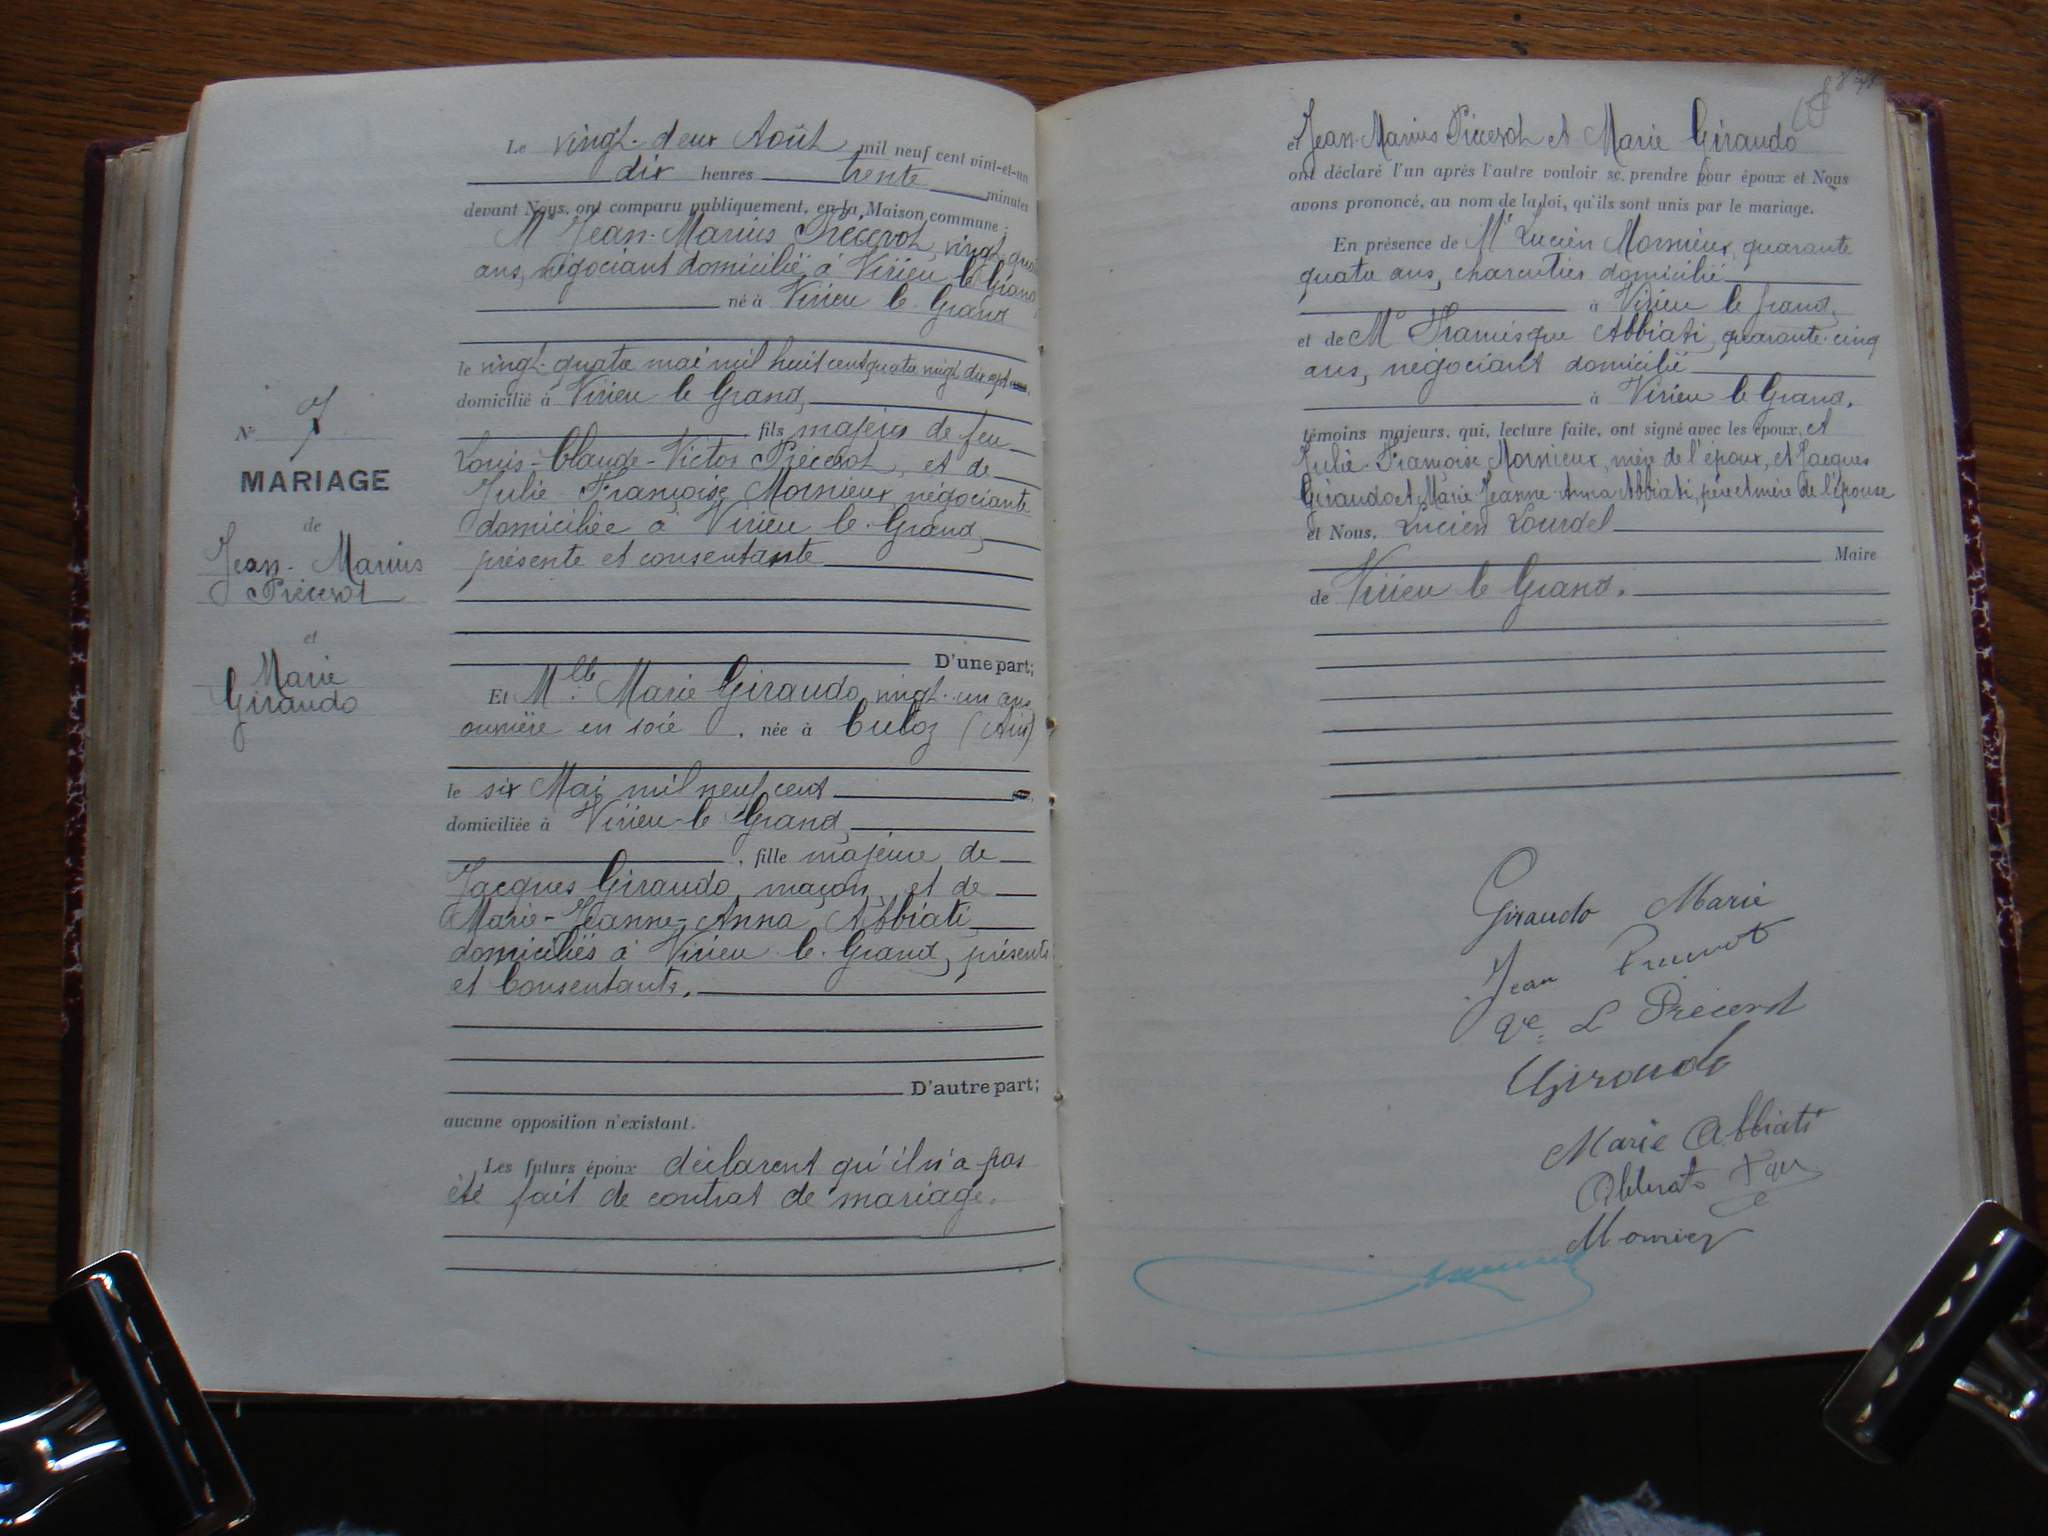 Le vingt-deux Août mil neuf cent vint-et-un
dix heures trente minutes
devant Nous, ont comparu publiquement, en la Maison commune :
Mr Jean-Marius Précerot, vingt-quatre
ans, négociant domicilié à Virieu le Grand
né à Virieu le Grand
le vingt-quatre mai mil huit cent quatre vingt dix sept
domicilié à Virieu le Grand,
fils majeur de feu
Louis-Claude-Victor Précerot, et de
Julie Françoise Mornieux, négociante
domiciliée à Virieu le Grand,
présente et consentante
D'une part;
Et Mlle Marie Giraudo, vingt-un ans
ouvrière en soie, née à Culoz (Ain)
le six Mai mil neuf cent
domiciliée à Virieu-le Grand,
, fille majeure de
Jacques Giraudo, maçon, et de
Marie-Jeanne-Anna Abbiati,
domiciliés à Virieu le Grand, présents
et Consentants.
D'autre part;
aucune opposition n'existant.
Les futurs époux déclarent qu'il n'a pas
été fait de contrat de mariage.
No 7
MARIAGE
de
Jean-Marius
Précerot
et
Marie
Giraudo
et Jean-Marius Précerot et Marie Giraudo
ont déclaré l'un après l'autre vouloir se prendre pour époux et Nous
avons prononcé, au nom de la loi, qu'ils sont unis par le mariage.
En présence de Mr Lucien Mornieux, quarante
quatre ans, charcutier domicilié
à Virieu le Grand,
et de Mr Francisque Abbiati, quarante-cinq
ans, négociant domicilié
à Virieu le Grand.
témoins majeurs, qui, lecture faite, ont signé avec les époux, et
Julie Françoise Mornieux, mère de l'époux, et Jacques
Giraudo et Marie Jeanne Anna Abbiati, père et mère de l'épouse
et Nous, Lucien Lourdel
Maire
de Virieu le Grand.
Giraudo Marie
Jean Précerot
Ve L Précerot
Giraudo
Marie Abbiati